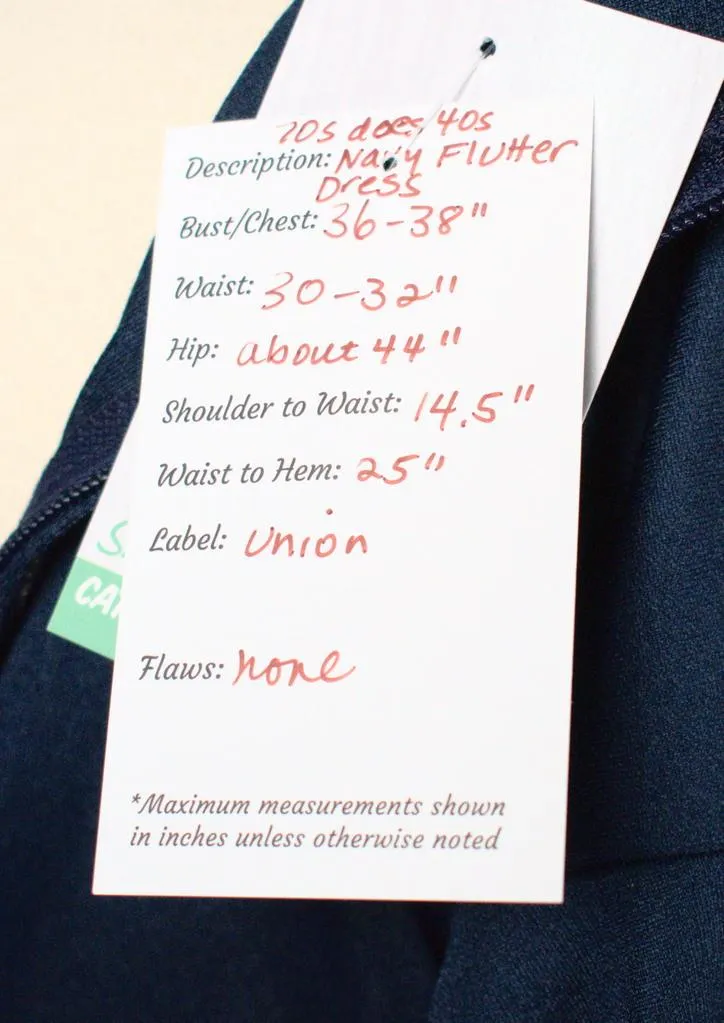 70s does 40s
Description: Navy Flutter
Dress
Bust/Chest: 36-38"
Waist: 30-32"
Hip: about 44"
Shoulder to Waist: 14.5"
Waist to Hem: 25"
Label: Union
Flaws: none
*Maximum measurements shown
in inches unless otherwise noted